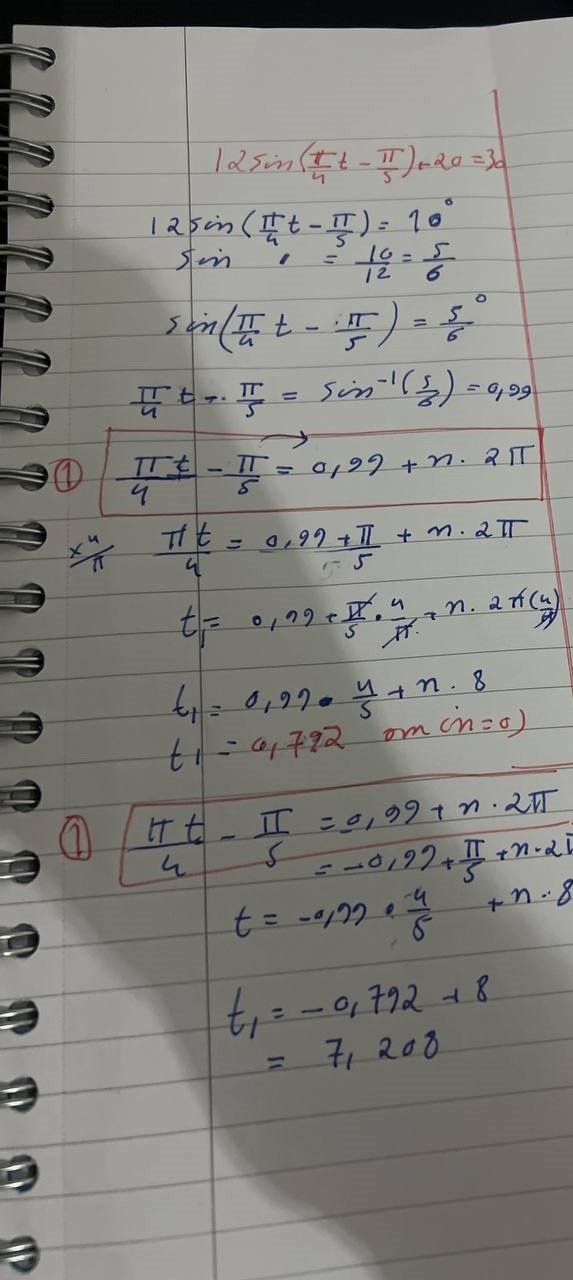 12sin(π/4 t - π/5)+20=30
12sin(π/4 t - π/5) = 10°
sin " = 10/12 = 5/6
sin(π/4 t - π/5) = 5/6°
π/4 t - π/5 = sin⁻¹(5/6) = 0,99
① πt/4 - π/5 = 0,99 + n · 2π
×4/π πt/4 = 0,99 + π/5 + n · 2π
t₁ = 0,99 + π/5 · 4/π + n · 2π(4/π)
t₁ = 0,99 · 4/5 + n · 8
t₁ = 0,792 om (n=0)
① πt/4 - π/5 = -0,99 + n · 2π
= -0,99 + π/5 + n · 2π
t = -0,99 · 4/5 + n · 8
t₁ = -0,792 + 8
= 7,208